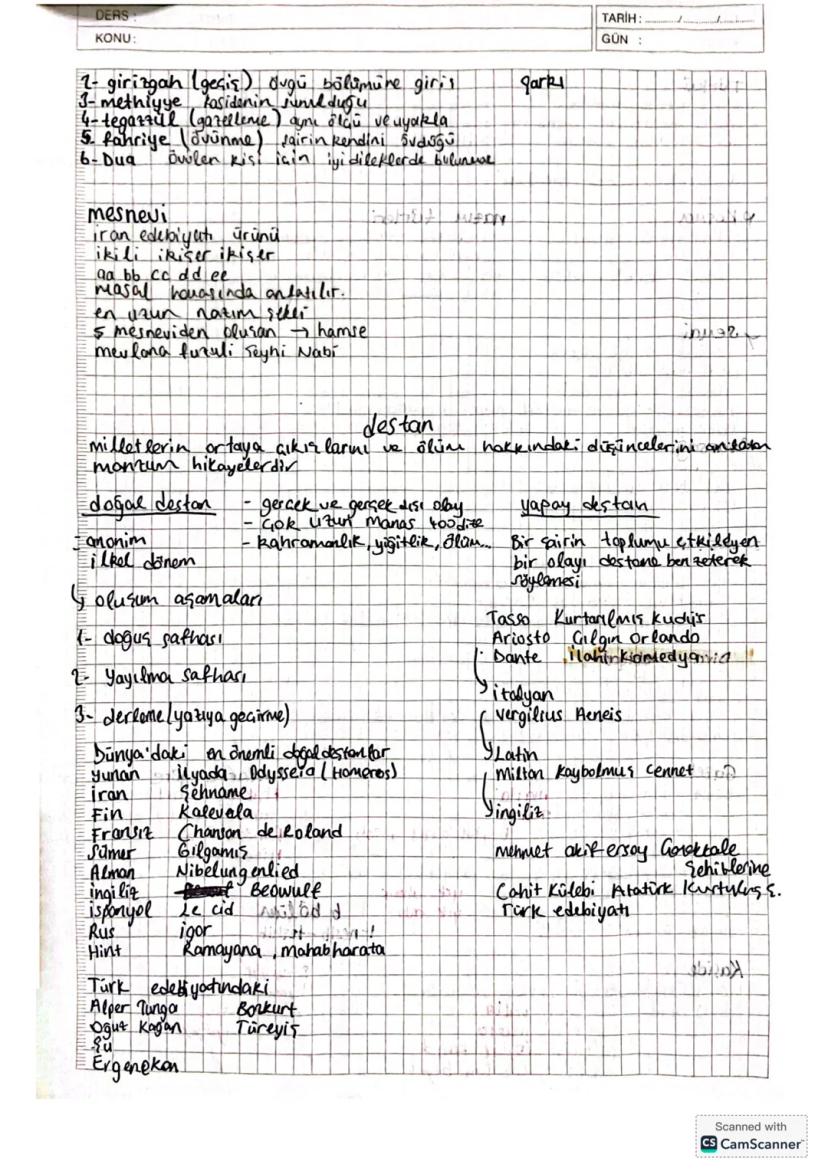 DERS :
KONU:
TARİH: ....../....../......
GÜN :
2- girizgah (geçiş) övgü bölümüne giriş
şarkı
3- methiyye kasidenin sunulduğu
4- tegazzül (gazelleme) aynı ölçü ve uyakla
5- fahriye (övünme) şairin kendini övdüğü
6- Dua övülen kişi için iyi dileklerde bulunma
mesnevi
iran edebiyatı ürünü
ikili ikişer ikişer
aa bb cc dd ee
masal havasında anlatılır.
en uzun nazım şekli
5 mesneviden oluşan → hamse
mevlana fuzuli Şeyhi Nabi
destan
milletlerin ortaya çıkışlarını ve ölüm hakkındaki düşüncelerini anlatan
manzum hikayelerdir
doğal destan
- gerçek ve gerçek dışı olay
- Çok uzun Manas 400dize
- kahramanlık, yiğitlik, ölüm...
- anonim
ilkel dönem
↳ oluşum aşamaları
1- doğuş safhası
2- Yayılma safhası
3- derleme (yazıya geçirme)
Dünya'daki en önemli doğal destanlar
yunan İlyada Odysseia (Homeros)
iran Şehname
Fin Kalevala
Fransız Chanson de Roland
Sümer Gılgamış
Alman Nibelungenlied
ingiliz Beowulf
ispanyol Le cid
Rus igor
Hint Ramayana, mahabharata
Türk edebiyatındaki
Alper Tunga Bozkurt
Oğuz Kağan Türeyiş
Şu
Ergenekon
yapay destan
Bir şairin toplumu etkileyen
bir olayı destana benzeterek
söylemesi
Tasso Kurtarılmış Kudüs
Ariosto Çılgın Orlando
Dante ilahi Komedya
↳ italyan
Vergilius Aeneis
↳ Latin
Milton Kaybolmuş Cennet
↳ ingiliz
mehmet akif ersoy Çanakkale
Şehitlerine
Cahit Külebi Atatürk Kurtuluş S.
Türk edebiyatı
Scanned with
CS CamScanner